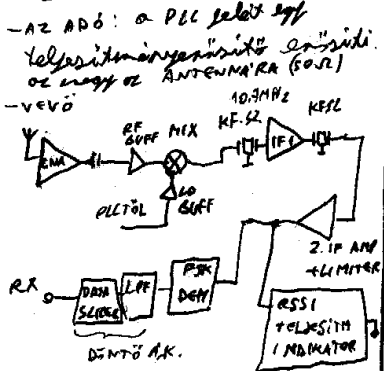 - AZ ADÓ: a PLL jelét egy
teljesítményerősítő erősíti
az megy az ANTENNÁRA (50Ω)
- VEVŐ
10,7MHz
RF
BUFF
MIX
KF.SZ
KFSZ
LNA
IF1
LO
BUFF
PLLTŐL
2. IF AMP
+LIMITER
RX
DATA
SLICER
LPF
FSK
DEM
RSSI
+TELJESÍTM
INDIKÁTOR
DÖNTŐ Á.K.